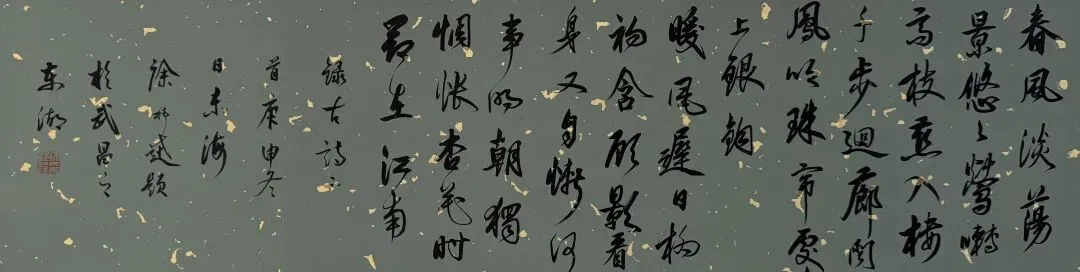 春風淡蕩
景悠々鶯囀
高枝燕入樓
千步迴廊聞
鳳吹珠帘處々
上銀鉤
暖風遲日柳
初含顧影看
身又自慚何
事明朝獨
惆悵杏花時
節在江南
錄古詩二
首庚申冬
日東海
徐題
於武昌之
東湖